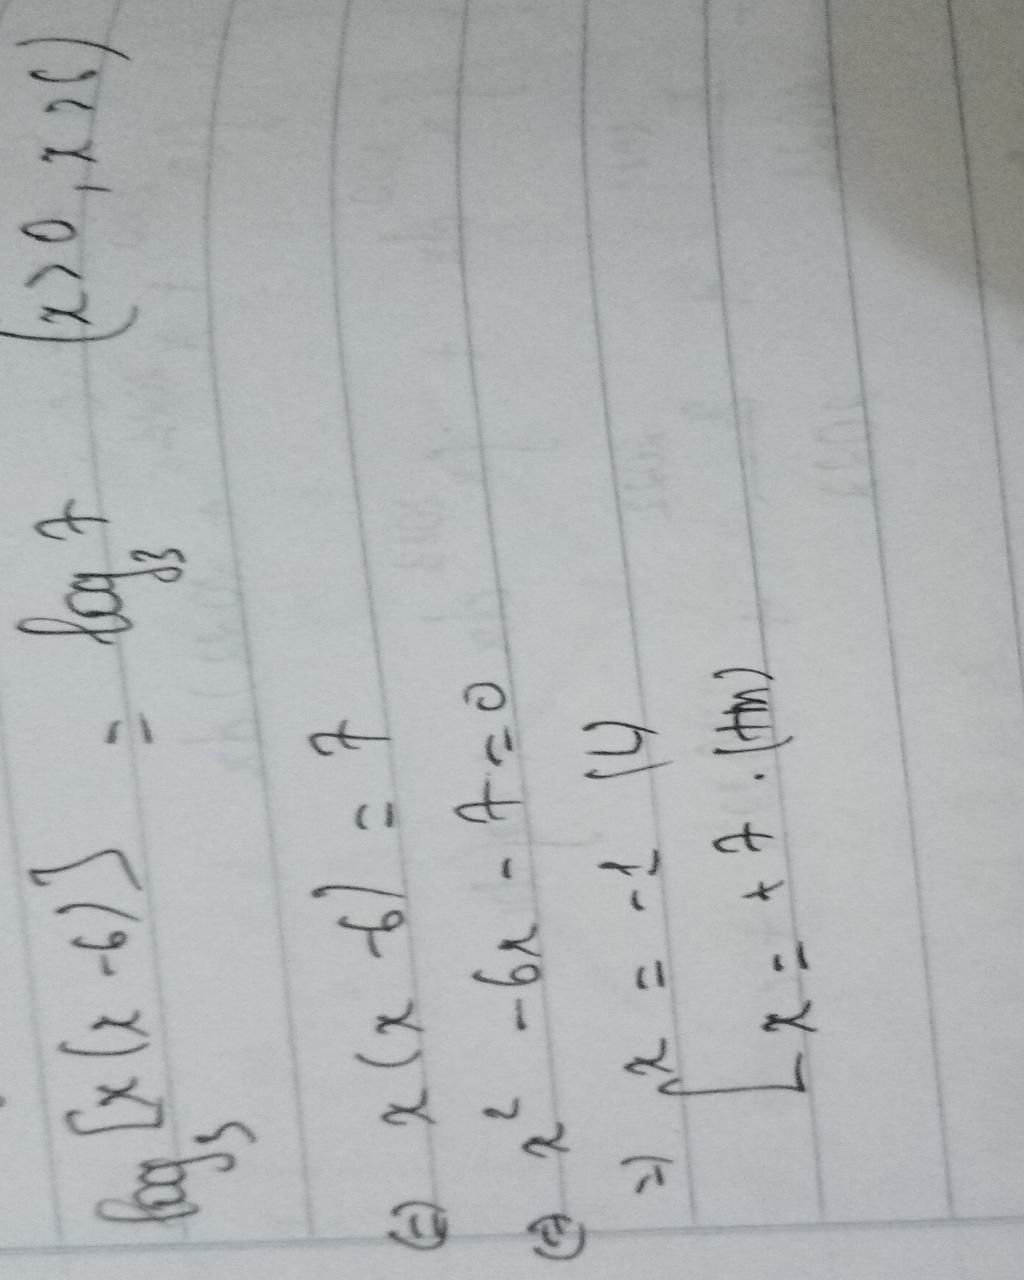 log₃[x(x-6)] = log₃7 (x>0, x>6)
(=) x(x-6) = 7
(=) x² -6x - 7=0
=) [x = -1 (L)
[x = +7. (tm)